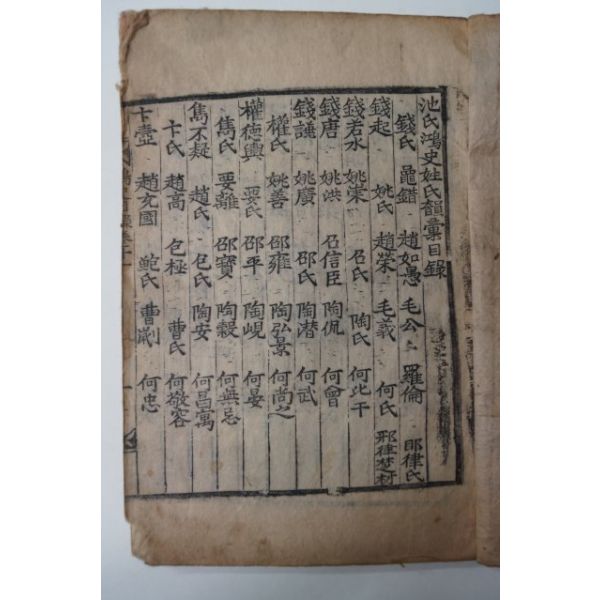 池氏鴻史姓氏韻彙目錄
錢氏 鼂錯 趙如愚 毛公 羅倫 耶律氏
錢起 姚氏 趙榮 毛義 何氏 耶律楚材
錢若水 姚崇 召氏 陶氏 何比干
錢唐 姚洪 召信臣 陶侃 何曾
錢諹 姚廣 邵氏 陶潛 何武
權氏 姚善 邵雍 陶弘景 何尚之
權德輿 要氏 邵平 陶峴 何晏
雋氏 要離 邵寶 陶穀 何無忌
雋不疑 趙氏 包氏 陶安 何昌寓
卞氏 趙高 包極 曹氏 何敬容
卞壼 趙充國 鮑氏 曹劌 何忠